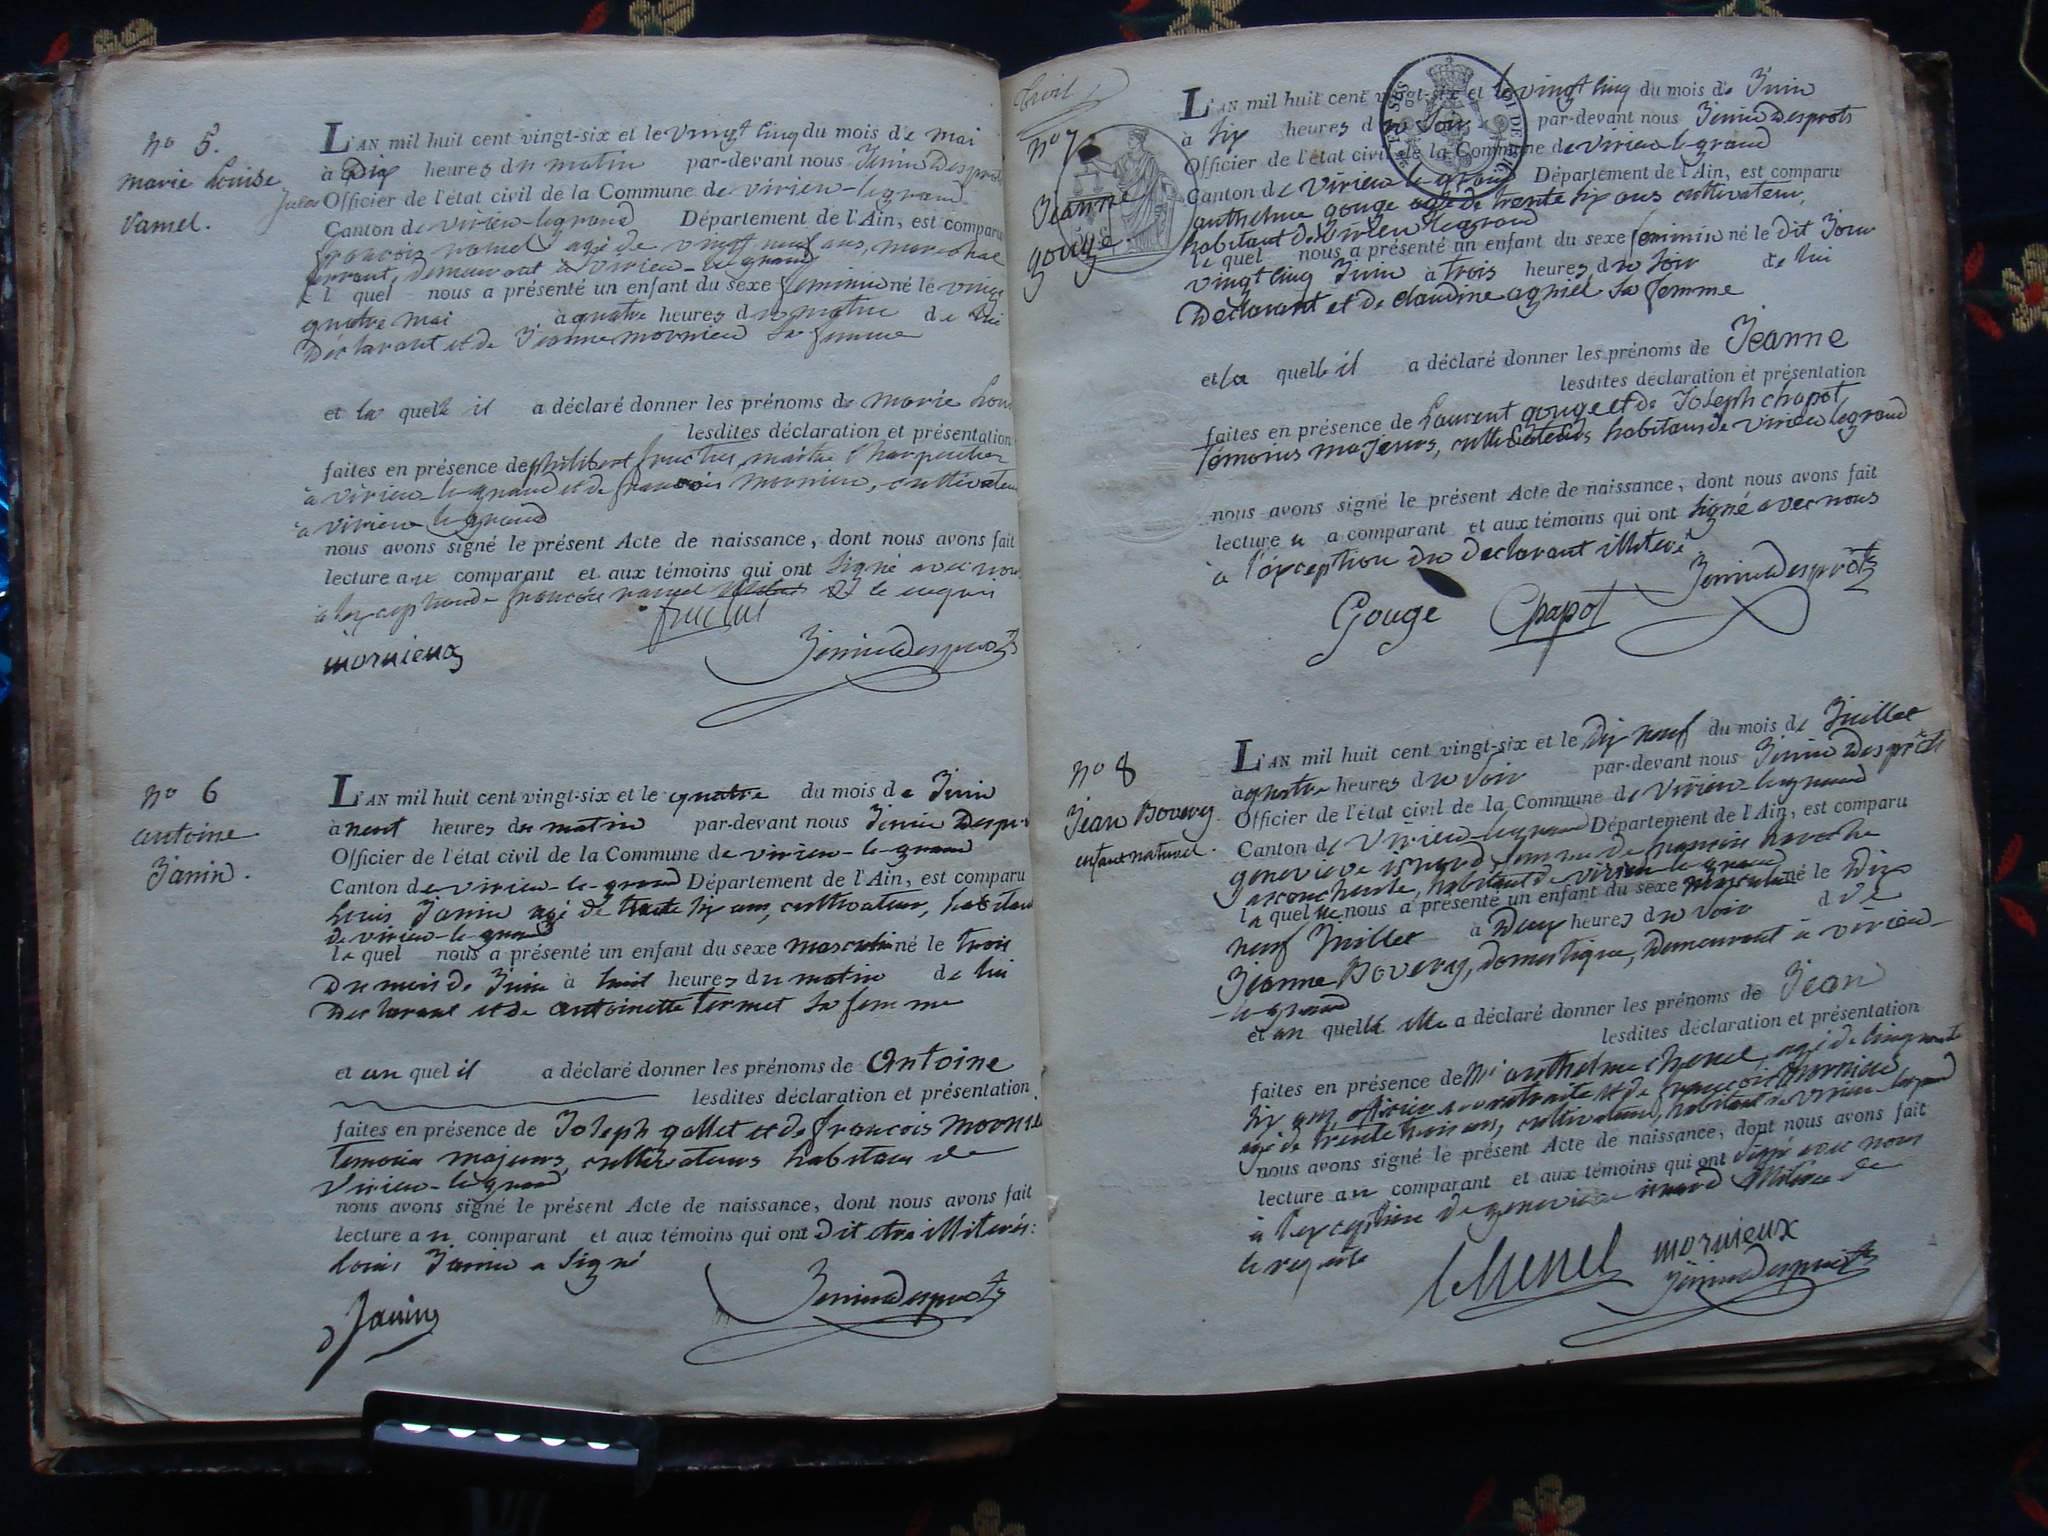 no 5.
marie Louise
Vamel.
L'AN mil huit cent vingt-six et le vingt cinq du mois de mai
à Dix heures du matin par-devant nous Jenin Desprots
Officier de l'état civil de la Commune de virieu-legrand
Canton de virieu-legrand Département de l'Ain, est comparu
françois vamel agé de vingt neuf ans, marechal
ferrant, demeurant à virieu-le grand
le quel nous a présenté un enfant du sexe feminin né le vingt
quatre mai à quatre heures du matin de lui
Déclarant et de Jeanne mornieu sa femme
et la quelle il a déclaré donner les prénoms de marie Louise
lesdites déclaration et présentation
faites en présence de philibert fructus, maitre Charpentier
à virieu-le grand et de françois mornieu, cultivateur
à virieu le grand
nous avons signé le présent Acte de naissance, dont nous avons fait
lecture au comparant et aux témoins qui ont signé avec nous
à l'exception de françois vamel de ce enquis
fructus
mornieux
Jenin Desprots
no 6
antoine
Janin.
L'AN mil huit cent vingt-six et le quatre du mois de Juin
à neuf heures du matin par-devant nous Jenin Despr
Officier de l'état civil de la Commune de virieu-le-grand
Canton de virieu-le-grand Département de l'Ain, est comparu
Louis Janin agé de trente six ans, cultivateur, habitant
de virieu-le grand
le quel nous a présenté un enfant du sexe masculin né le trois
Du mois de Juin à huit heures du matin de lui
Declarant et de antoinette Termet sa femme
et au quel il a déclaré donner les prénoms de Antoine
lesdites déclaration et présentation
faites en présence de Joseph gallet et de françois mornieu
temoins majeurs, cultivateurs habitans de
Virieu-le grand
nous avons signé le présent Acte de naissance, dont nous avons fait
lecture au comparant et aux témoins qui ont Dit etre illiterés:
Louis Janin a signé
Janin
Jenin Desprots
no 7
Jeanne
gouge.
L'AN mil huit cent vingt-six et le vingt cinq du mois de Juin
à six heures du soir par-devant nous Jenin Desprots
Officier de l'état civil de la Commune de virieu-legrand
Canton de virieu le grand Département de l'Ain, est comparu
anthelme gouge agé de trente six ans cultivateur,
habitant de virieu legrand
le quel nous a présenté un enfant du sexe feminin né le dit Jour
vingt cinq Juin à trois heures du soir de lui
Déclarant et de claudine agniel sa femme
et la quelle il a déclaré donner les prénoms de Jeanne
lesdites déclaration et présentation
faites en présence de Laurent gouge et de Joseph chapot
témoins majeurs, cultivateurs habitans de virieu legrand
nous avons signé le présent Acte de naissance, dont nous avons fait
lecture u a comparant et aux témoins qui ont signé avec nous
à l'exception du declarant illiteré
Jenin Desprots
Gouge Chapot
no 8
Jean Bovery.
enfant naturel.
L'AN mil huit cent vingt-six et le dix neuf du mois de Juillet
à quatre heures du soir par-devant nous Jenin Desprots
Officier de l'état civil de la Commune de Virieu-legrand
Canton de Virieu-legrand Département de l'Ain, est comparu
genevieve femme de françois
accoucheuse, habitant de virieu-le grand
la quelle nous a présenté un enfant du sexe masculin né le Dix
neuf Juillet à Deux heures du soir de
Jeanne Bovery, domestique, demeurant à virieu-
-le grand
et au quelle elle a déclaré donner les prénoms de Jean
lesdites déclaration et présentation
faites en présence de Mr anthelme chenel, agé de cinquante
six ans, officier en retraite et de françois mornieu,
agé de trente trois ans, cultivateur, habitant de virieu legrand
nous avons signé le présent Acte de naissance, dont nous avons fait
lecture au comparant et aux témoins qui ont signé avec nous
à l'exception de genevieve de
ce requise
Chenel mornieux
Jenin Desprots